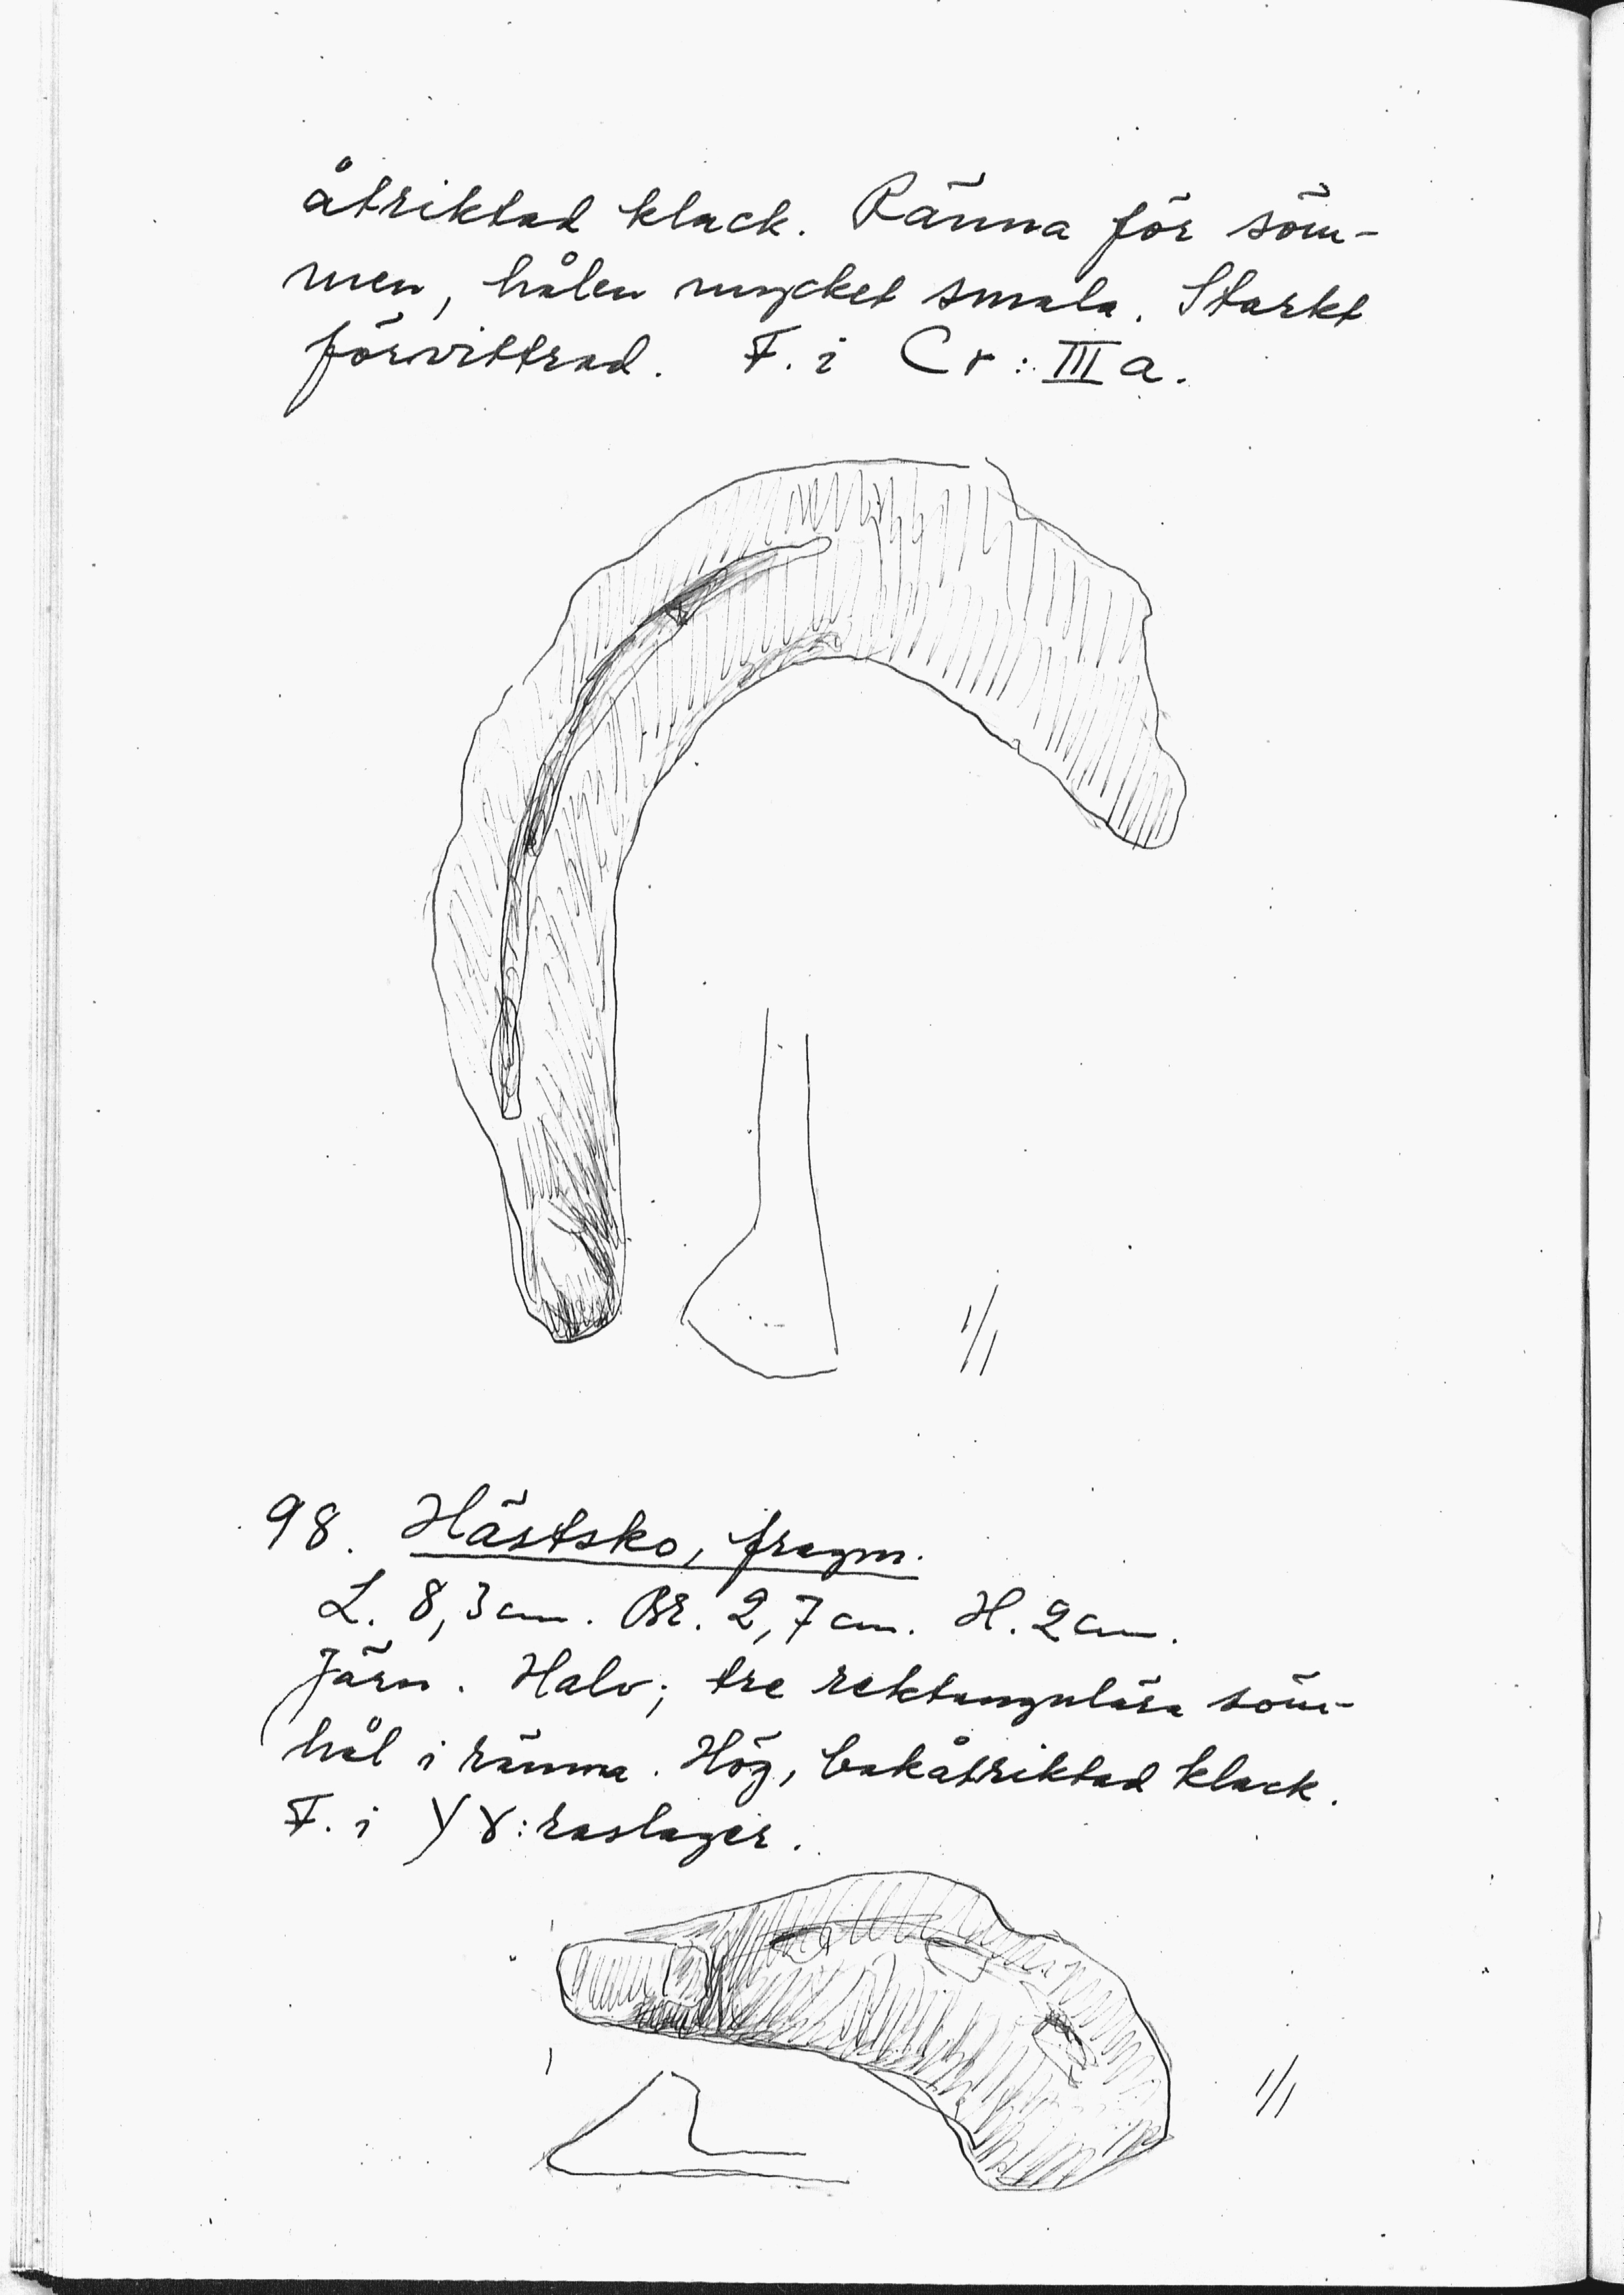 åtriktad klack. Ränna för söm-
men, hålen mycket smala. Starkt
förvittrad. F. i Cr: III a.
1/1
98. Hästsko, fragm.
L. 8,3 cm. Br. 2,7 cm. H. 2 cm.
Järn. Halv; tre rektangulära söm-
hål i ränna. Hög, bakåtriktad klack.
F. i Yγ: raslager.
1/1